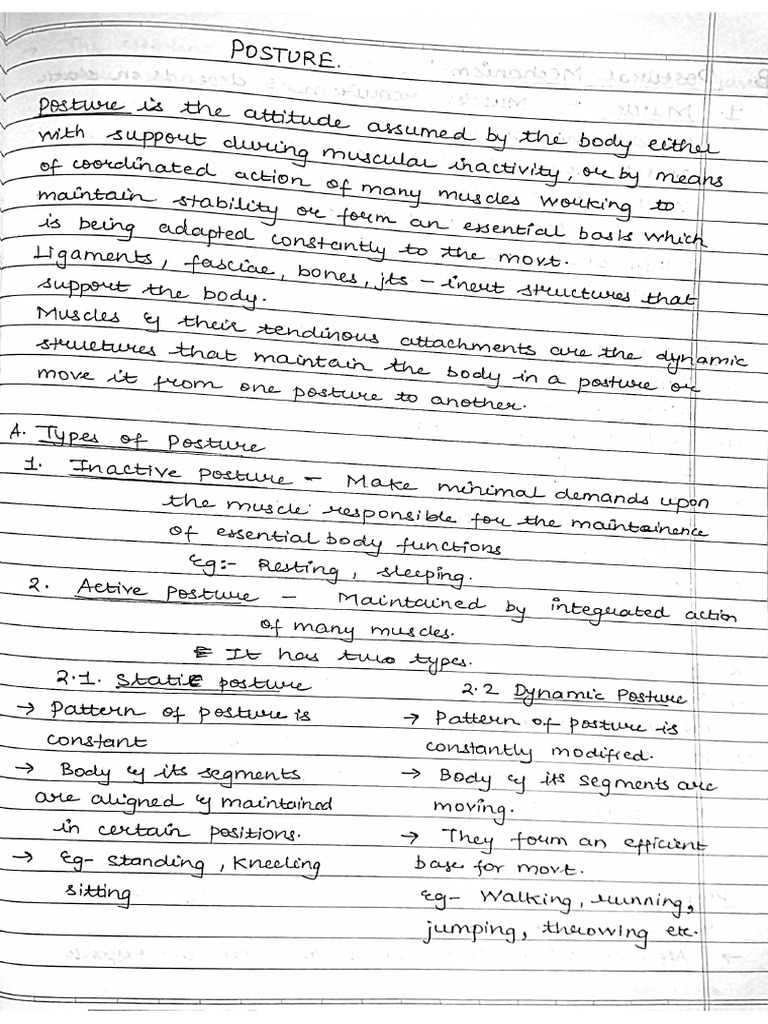 POSTURE.
Posture is the attitude assumed by the body either
with support during muscular inactivity, or by means
of coordinated action of many muscles working to
maintain stability or form an essential basis which
is being adapted constantly to the movt.
Ligaments, fasciae, bones, jts – inert structures that
support the body.
Muscles & their tendinous attachments are the dynamic
structures that maintain the body in a posture or
move it from one posture to another.
A. Types of Posture
1. Inactive posture – Make minimal demands upon
the muscle responsible for the maintainence
of essential body functions
Eg:- Resting, sleeping.
2. Active posture – Maintained by integrated action
of many muscles.
It has two types.
2.1. Static posture
→ Pattern of posture is
constant
→ Body & its segments
are aligned & maintained
in certain positions.
→ Eg- Standing, kneeling
sitting
2.2 Dynamic Posture
→ Pattern of posture is
constantly modified.
→ Body & its segments are
moving.
→ They form an efficient
base for movt.
Eg- Walking, running,
jumping, throwing etc.